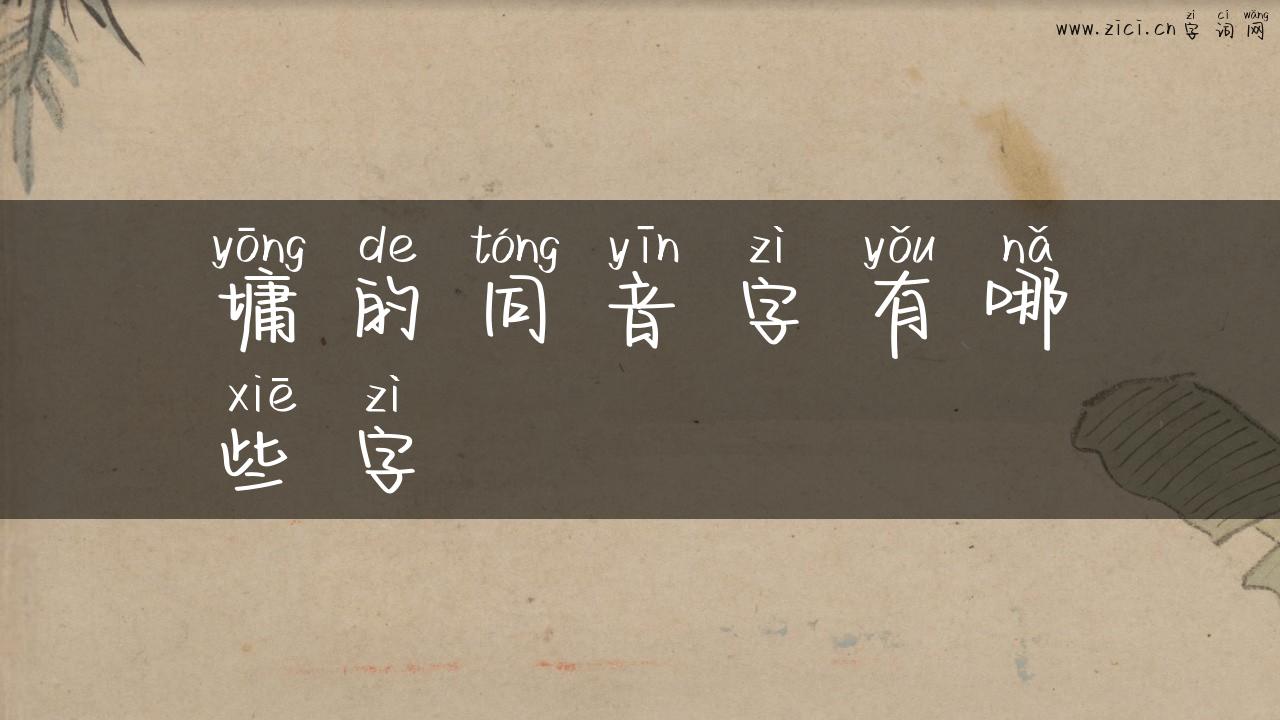 zì cí wǎng
www.zici.cn 字词网
yōng de tóng yīn zì yǒu nǎ
墉的同音字有哪
xiē zì
些字